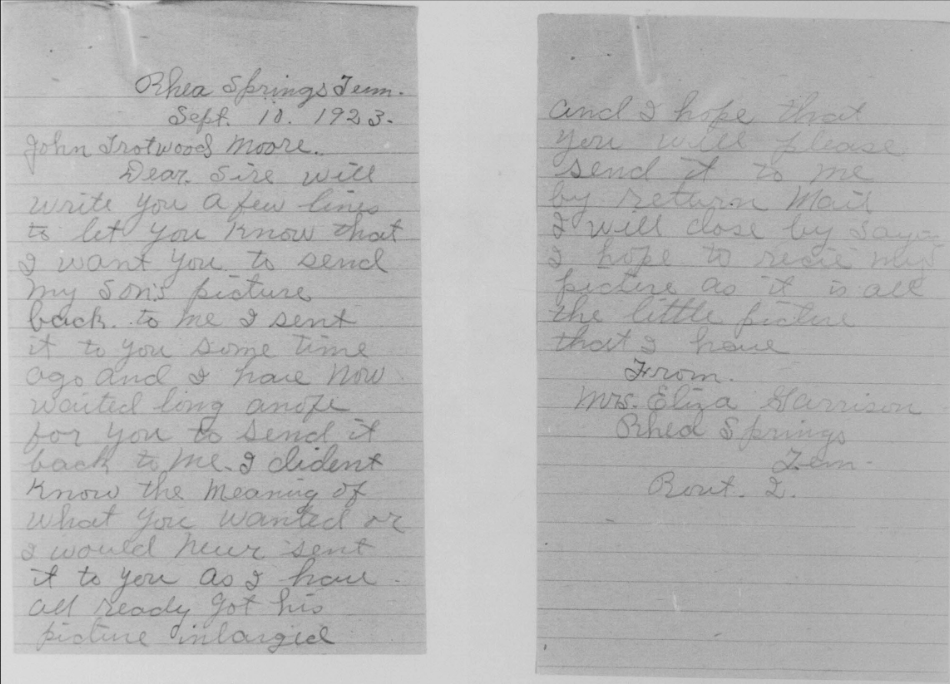 Rhea Springs Tenn.
Sept. 10. 1923.
John Trotwood Moore.
Dear Sire will
write you a few lines
to let you know that
I want you to send
my son's picture
back. to me I sent
it to you some time
ago and I have now
waited long anofe
for you to send it
back to me. I dident
know the meaning of
what you wanted or
I would never sent
it to you as I have
all ready got his
picture inlarged
and I hope that
you will please
send it to me
by return mail
I will close by saya
I hope to recie my
picture as it is all
the little picture
that I have
From.
Mrs. Eliza Garrison
Rhea Springs
Tenn.
Rout. 2.